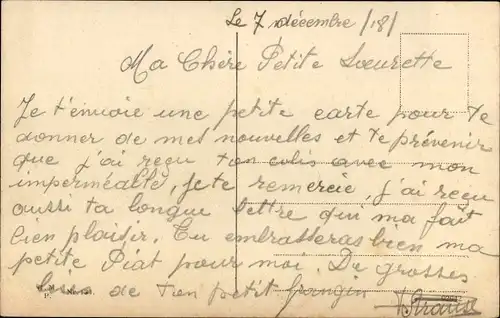 Le 7 décembre /18/
Ma Chère Petite Soeurette
Je t'envoie une petite carte pour te
donner de mes nouvelles et te prévenir
que j'ai reçu ton colis avec mon
imperméable, je te remercie, j'ai reçu
aussi ta longue lettre qui ma fait
bien plaisir. Tu embrasseras bien ma
petite Piat pour moi. De grosses
de ton petit frangin